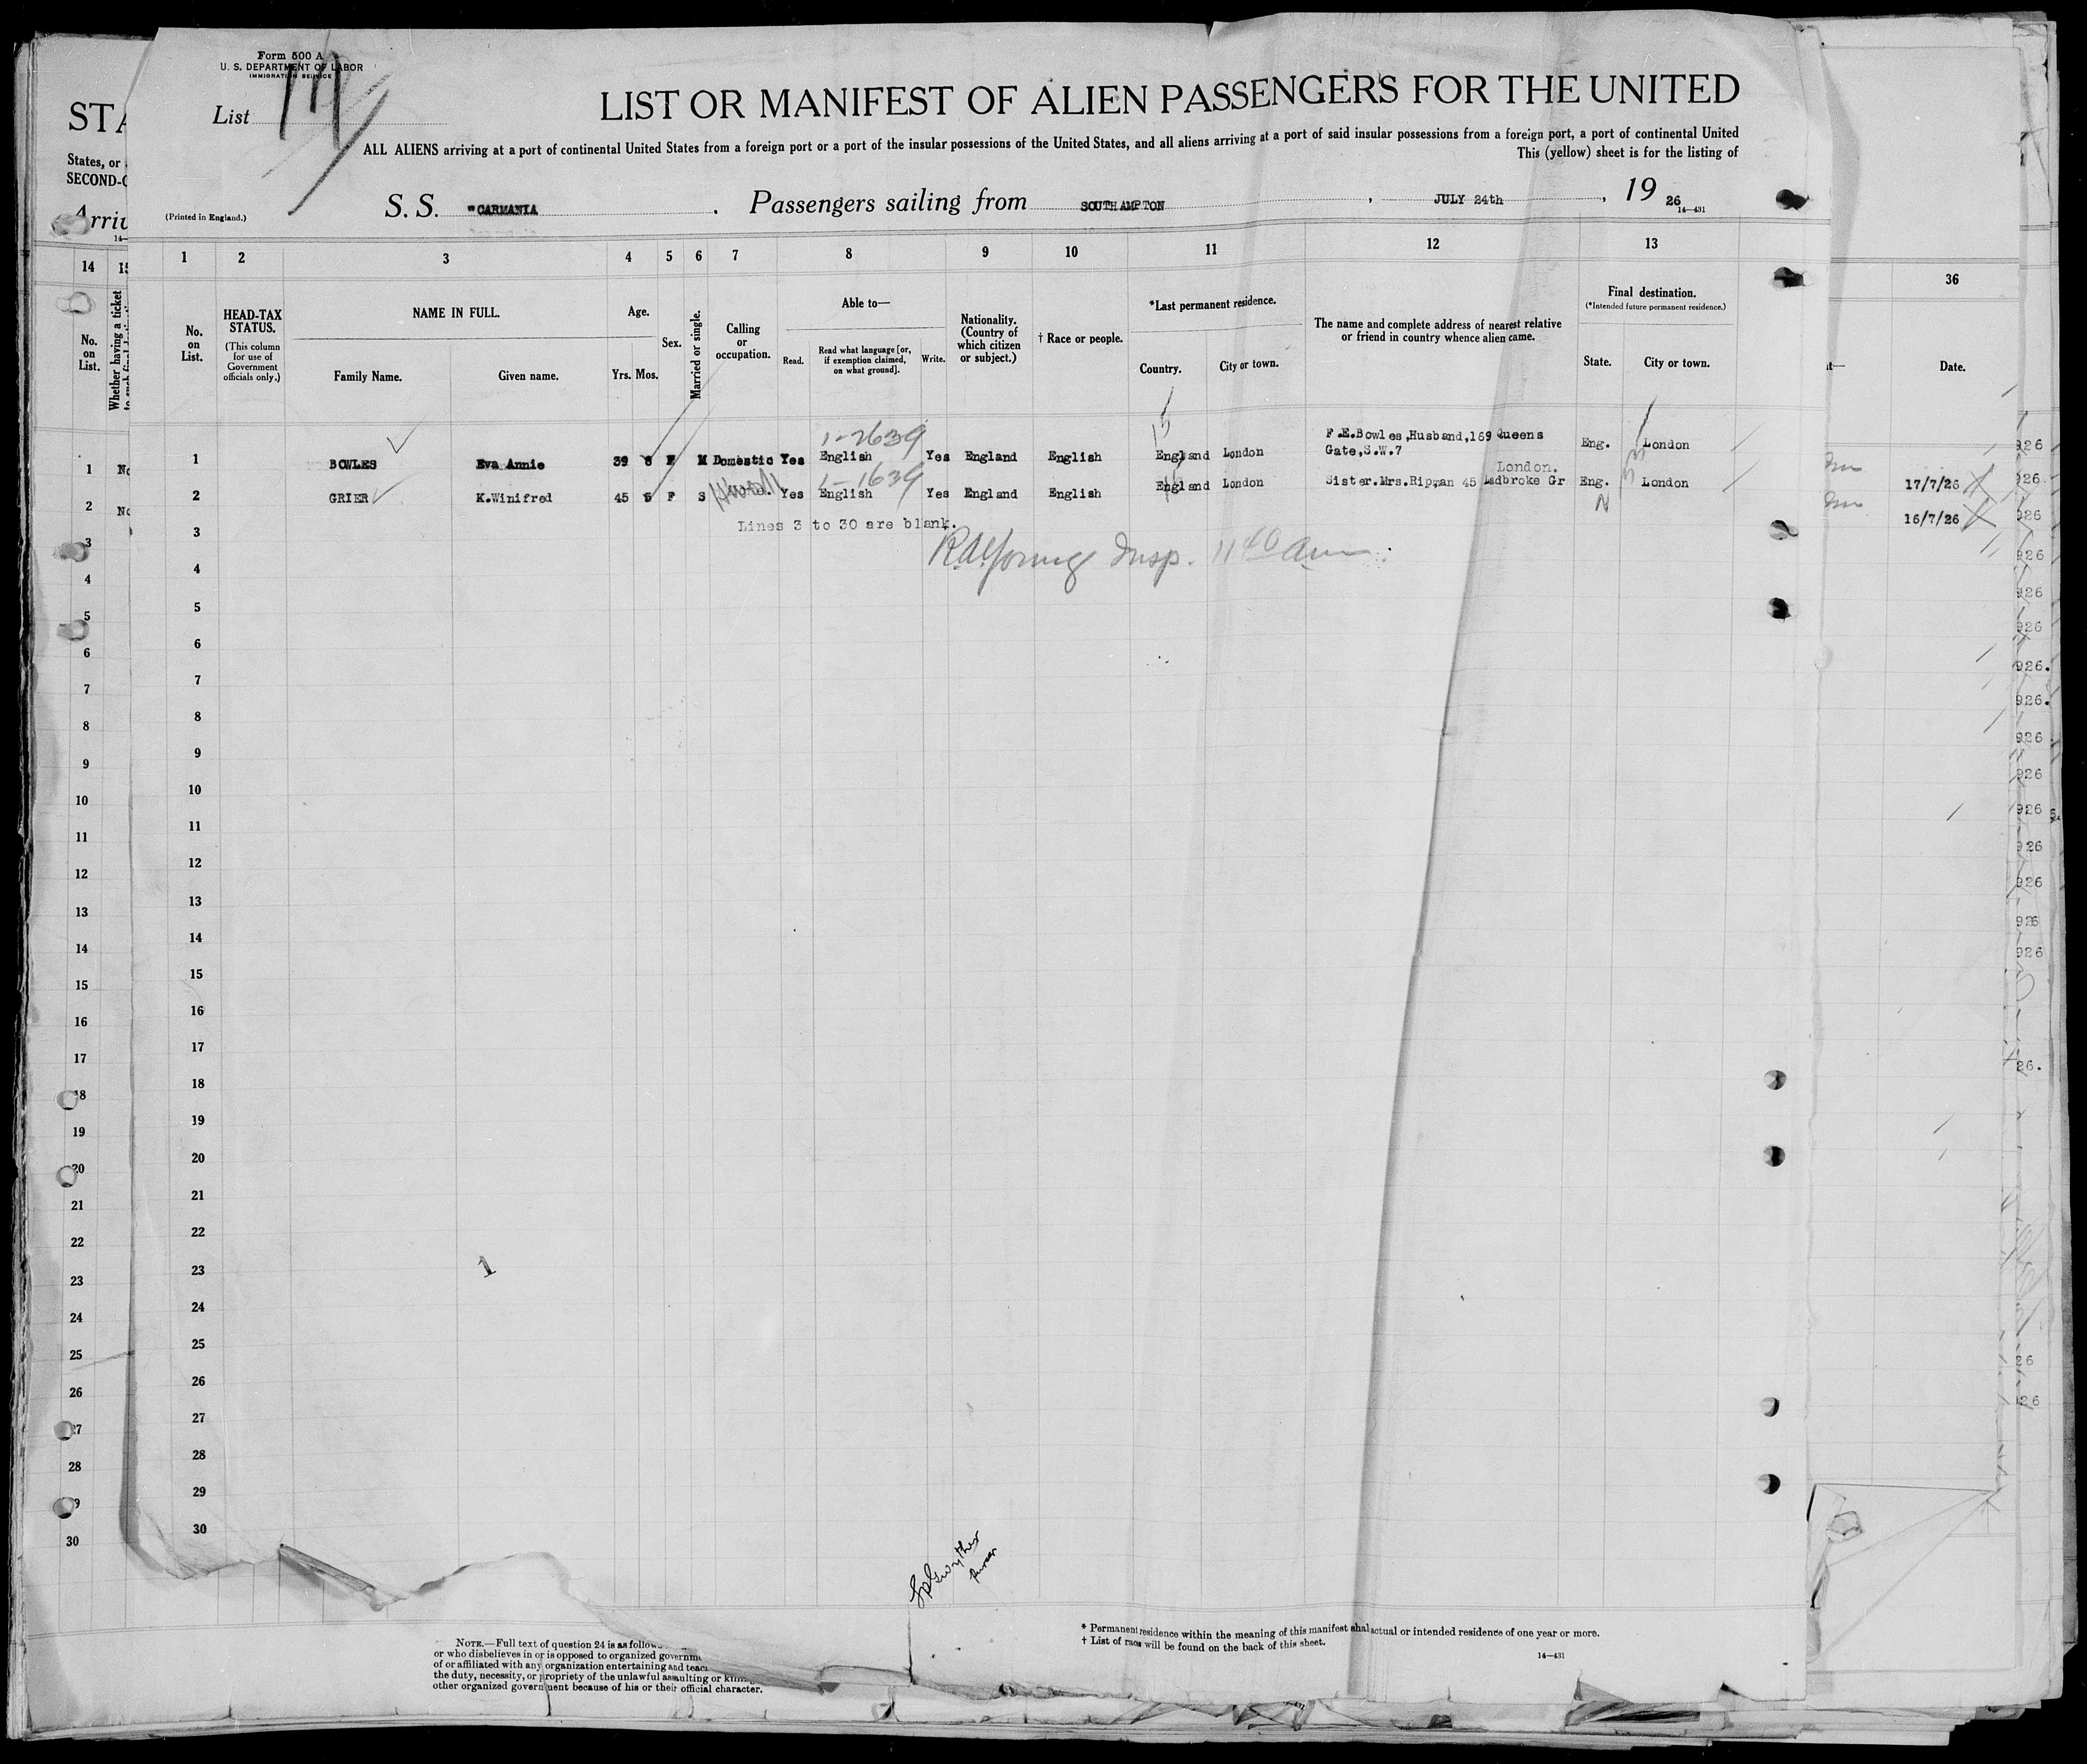 Form 500 A
U. S. DEPARTMENT OF LABOR
IMMIGRATION SERVICE
List
LIST OR MANIFEST OF ALIEN PASSENGERS FOR THE UNITED
STA
ALL ALIENS arriving at a port of continental United States from a foreign port or a port of the insular possessions of the United States, and all aliens arriving at a port of said insular possessions from a foreign port, a port of continental United
States, or
This (yellow) sheet is for the listing of
SECOND-C
S. S. "CARMANIA . Passengers sailing from SOUTHAMPTON , JULY 24th , 19 26
(Printed in England.)
Arriv
14—431
14 15 1 2 3 4 5 6 7 8 9 10 11 12 13 36
No. on List.
Whether having a ticket
No. on List.
HEAD-TAX STATUS.
(This column for use of Government officials only.)
NAME IN FULL.
Family Name. Given name.
Age.
Yrs. Mos.
Sex.
Married or single.
Calling or occupation.
Able to—
Read. Read what language [or, if exemption claimed, on what ground]. Write.
Nationality. (Country of which citizen or subject.)
† Race or people.
*Last permanent residence.
Country. City or town.
The name and complete address of nearest relative or friend in country whence alien came.
Final destination.
(*Intended future permanent residence.)
State. City or town.
Date.
1-2639
15
1 BOWLES Eva Annie 39 F M Domestic Yes English Yes England English England London F.E.Bowles,Husband,169 Queens Gate,S.W.7 Eng. London
1-1639
London.
2 GRIER K.Winifred 45 F S Yes English Yes England English England London Sister.Mrs.Ripman 45 Ladbroke Gr Eng. London
17/7/26
N
16/7/26
Lines 3 to 30 are blank.
Insp. 11 40 am.
1
2
3
4
5
6
7
8
9
10
11
12
13
14
15
16
17
18
19
20
21
22
23
24
25
26
27
28
29
30
3
4
5
6
7
8
9
10
11
12
13
14
15
16
17
18
19
20
21
22
23
1
24
25
26
27
28
29
30
Purser
NOTE.—Full text of question 24 is as follows
or who disbelieves in or is opposed to organized governme
of or affiliated with any organization entertaining and teac
the duty, necessity, or propriety of the unlawful assaulting or killing
other organized government because of his or their official character.
* Permanent residence within the meaning of this manifest shal actual or intended residence of one year or more.
† List of races will be found on the back of this sheet.
14—431